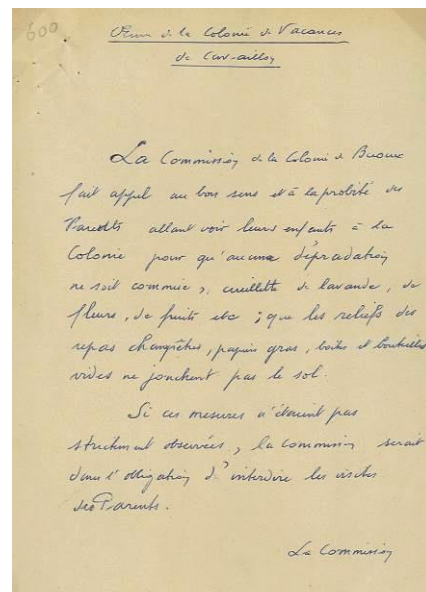 600
Œuvre de la Colonie de Vacances
de Cavaillon
La Commission de la Colonie de Buoux
fait appel au bon sens et à la probité des
Parents allant voir leurs enfants à la
Colonie pour qu'aucune dépradation
ne soit commise, cueillette de lavande, de
fleurs, de fruits etc ; que les reliefs des
repas champêtres, papiers gras, boîtes et bouteilles
vides ne jonchent pas le sol.
Si ces mesures n'étaient pas
strictement observées, la Commission serait
dans l'obligation d'interdire les visites
des Parents.
La Commission